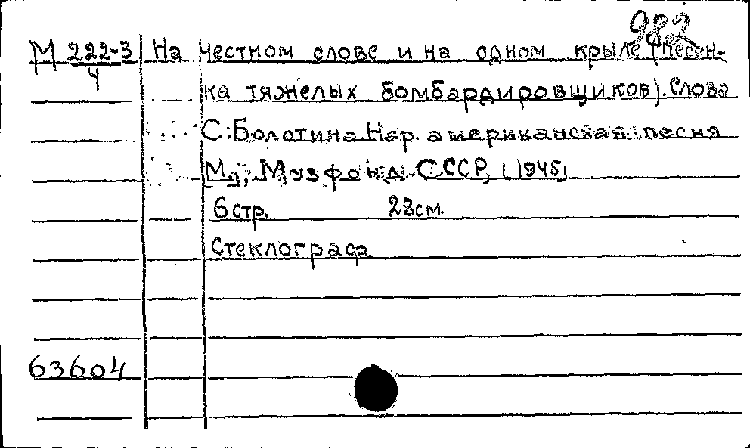 982
М 222-3 На честном слове и на одном крыле (песен-
4 ка тяжелых бомбардировщиков). Слова
С. Болотина. Нар. американская песня
М., Музфонд СССР, 1945,
6 стр. 28 см.
Стеклограф
63604